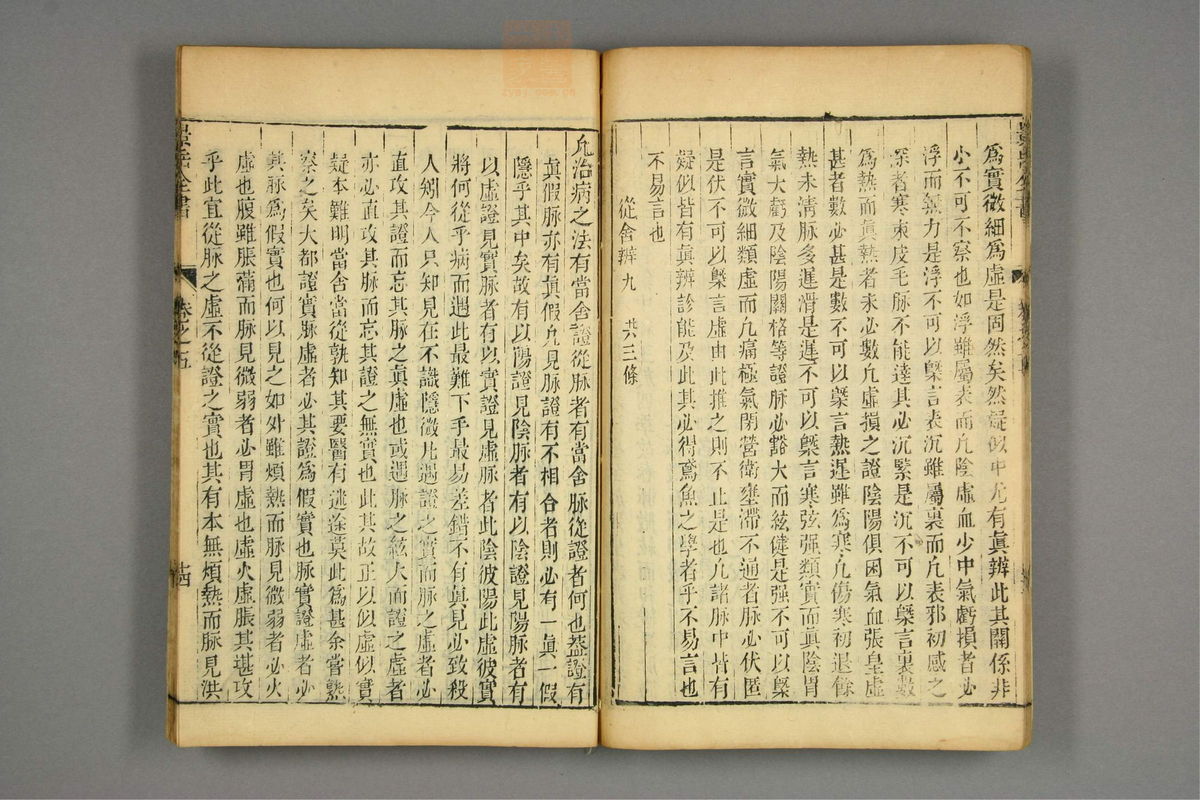 爲實微細爲虛是固然矣然疑似中尤有眞辨此其關係非
小不可不察也如浮雖屬表而凢陰虛血少中氣虧損者必
浮而無力是浮不可以槩言表沉雖屬裏而凢表邪初感之
深者寒束皮毛脉不能達其必沉緊是沉不可以槩言裏數
爲熱而眞熱者未必數凢虛損之證陰陽俱困氣血張皇虛
甚者數必甚是數不可以槩言熱遲雖爲寒凢傷寒初退餘
熱未淸脉多遲滑是遲不可以槩言寒弦强類實而眞陰胃
氣大虧及陰陽關格等證脉必豁大而絃健是强不可以槩
言實微細類虛而凢痛極氣閉營衛壅滯不通者脉必伏匿
是伏不可以槩言虛由此推之則不止是也凢諸脉中皆有
疑似皆有眞辨診能及此其必得鳶魚之學者乎不易言也
不易言也
從舍辨 九 共三條
凢治病之法有當舍證從脉者有當舍脉從證者何也葢證有
眞假脉亦有眞假凢見脉證有不相合者則必有一眞一假
隱乎其中矣故有以陽證見陰脉者有以陰證見陽脉者有
以虛證見實脉者有以實證見虛脉者此陰彼陽此虛彼實
將何從乎病而遇此最難下手最易差錯不有眞見必致殺
人矧今人只知見在不識隱微凡遇證之實而脉之虛者必
直攻其證而忘其脉之眞虛也或遇脉之絃大而證之虛者
亦必直攻其脉而忘其證之無實也此其故正以似虛似實
疑本難明當舍當從孰知其要醫有迷途莫此爲甚余嘗熟
察之矣大都證實脉虛者必其證爲假實也脉實證虛者必
其脉爲假實也何以見之如外雖煩熱而脉見微弱者必火
虛也腹雖脹滿而脉見微弱者必胃虛也虛火虛脹其堪攻
乎此宜從脉之虛不從證之實也其有本無煩熱而脉見洪
景岳全書
卷之五